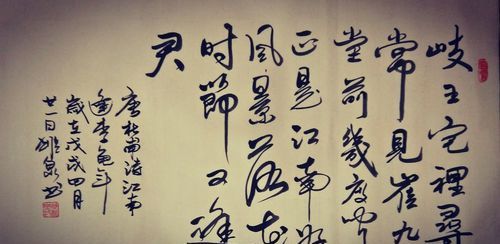 岐王宅裡尋
常見崔九
堂前幾度聞
正是江南好
風景落花
时節又逢
君
唐杜甫詩江南
逢李龜年
歲在戊戌四月
廿一日